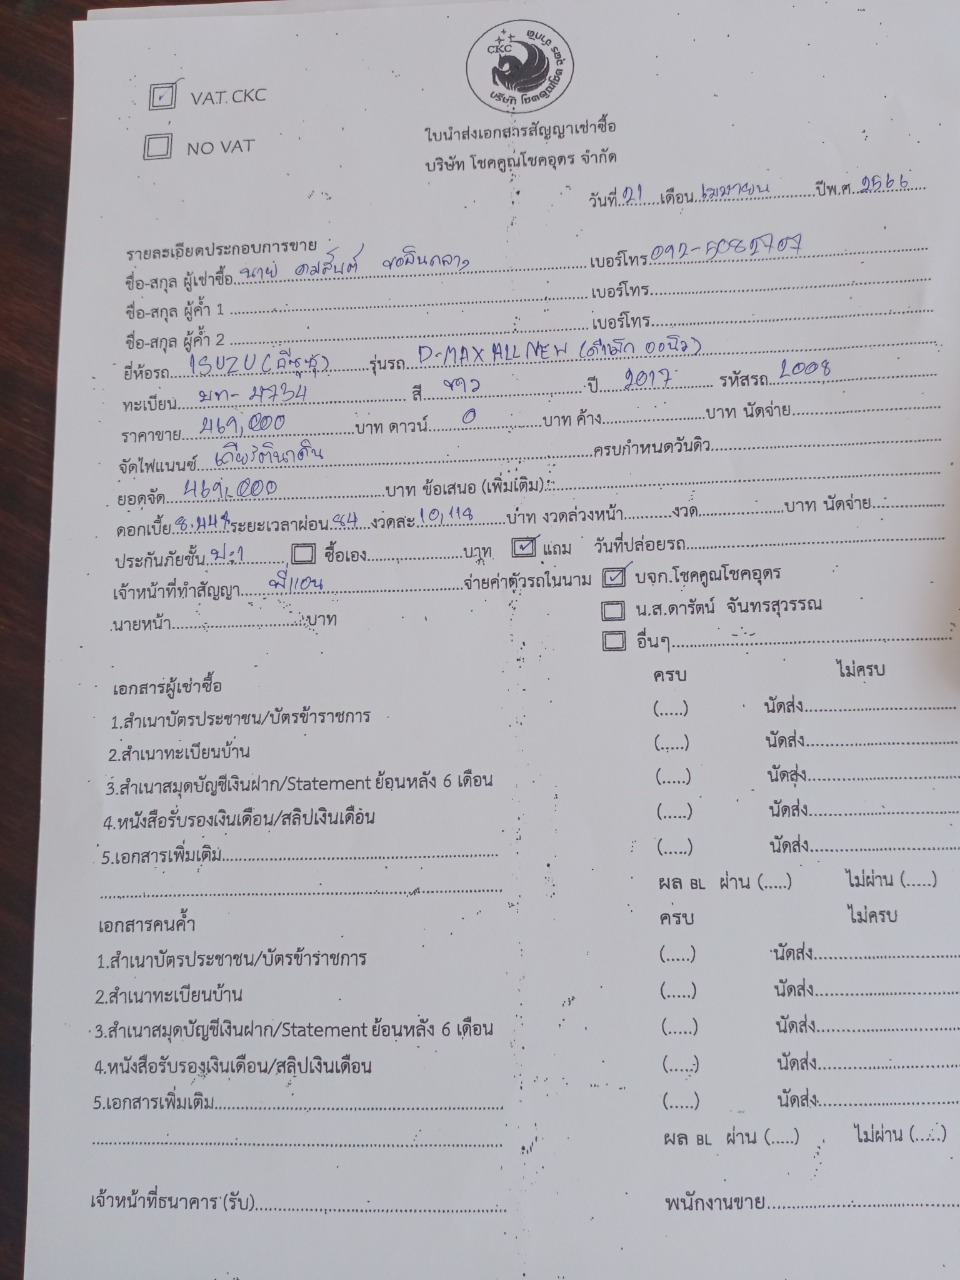 CKC
บริษัท โชคคูณโชค อุดร จำกัด
VAT. CKC
NO VAT
ใบนำส่งเอกสารสัญญาเช่าซื้อ
บริษัท โชคคูณโชคอุดร จำกัด
วันที่ 21 เดือน เมษายน ปีพ.ศ. 2566
รายละเอียดประกอบการขาย
ชื่อ-สกุล ผู้เช่าซื้อ นาย คมสันต์ เบอร์โทร 092-5082707
ชื่อ-สกุล ผู้ค้ำ 1 เบอร์โทร
ชื่อ-สกุล ผู้ค้ำ 2 เบอร์โทร
ยี่ห้อรถ ISUZU (อีซูซุ) รุ่นรถ D-MAX ALL NEW (ดีแม็ก ออนิว)
ทะเบียน 4734 สี ขาว ปี 2017 รหัสรถ 2008
ราคาขาย 469,000 บาท ดาวน์ 0 บาท ค้าง บาท นัดจ่าย
จัดไฟแนนซ์ เกียรตินาคิน ครบกำหนดวันดิว
ยอดจัด 469,000 บาท ข้อเสนอ (เพิ่มเติม) :
ดอกเบี้ย 8.44% ระยะเวลาผ่อน 84 งวดละ 10,118 บาท งวดล่วงหน้า งวด บาท นัดจ่าย
ประกันภัยชั้น ป.1 ซื้อเอง บาท แถม วันที่ปล่อยรถ
เจ้าหน้าที่ทำสัญญา พี่แอน จ่ายค่าตัวรถในนาม บจก.โชคคูณโชคอุดร
นายหน้า บาท น.ส.ดารัตน์ จันทรสุวรรณ
อื่นๆ
เอกสารผู้เช่าซื้อ ครบ ไม่ครบ
1.สำเนาบัตรประชาชน/บัตรข้าราชการ (.....) นัดส่ง
2.สำเนาทะเบียนบ้าน (.....) นัดส่ง
3.สำเนาสมุดบัญชีเงินฝาก/Statement ย้อนหลัง 6 เดือน (.....) นัดส่ง
4.หนังสือรับรองเงินเดือน/สลิปเงินเดือน (.....) นัดส่ง
5.เอกสารเพิ่มเติม (.....) นัดส่ง
ผล BL ผ่าน (.....) ไม่ผ่าน (.....)
เอกสารคนค้ำ ครบ ไม่ครบ
1.สำเนาบัตรประชาชน/บัตรข้าราชการ (.....) นัดส่ง
2.สำเนาทะเบียนบ้าน (.....) นัดส่ง
3.สำเนาสมุดบัญชีเงินฝาก/Statement ย้อนหลัง 6 เดือน (.....) นัดส่ง
4.หนังสือรับรองเงินเดือน/สลิปเงินเดือน (.....) นัดส่ง
5.เอกสารเพิ่มเติม (.....) นัดส่ง
ผล BL ผ่าน (.....) ไม่ผ่าน (.....)
เจ้าหน้าที่ธนาคาร (รับ) พนักงานขาย